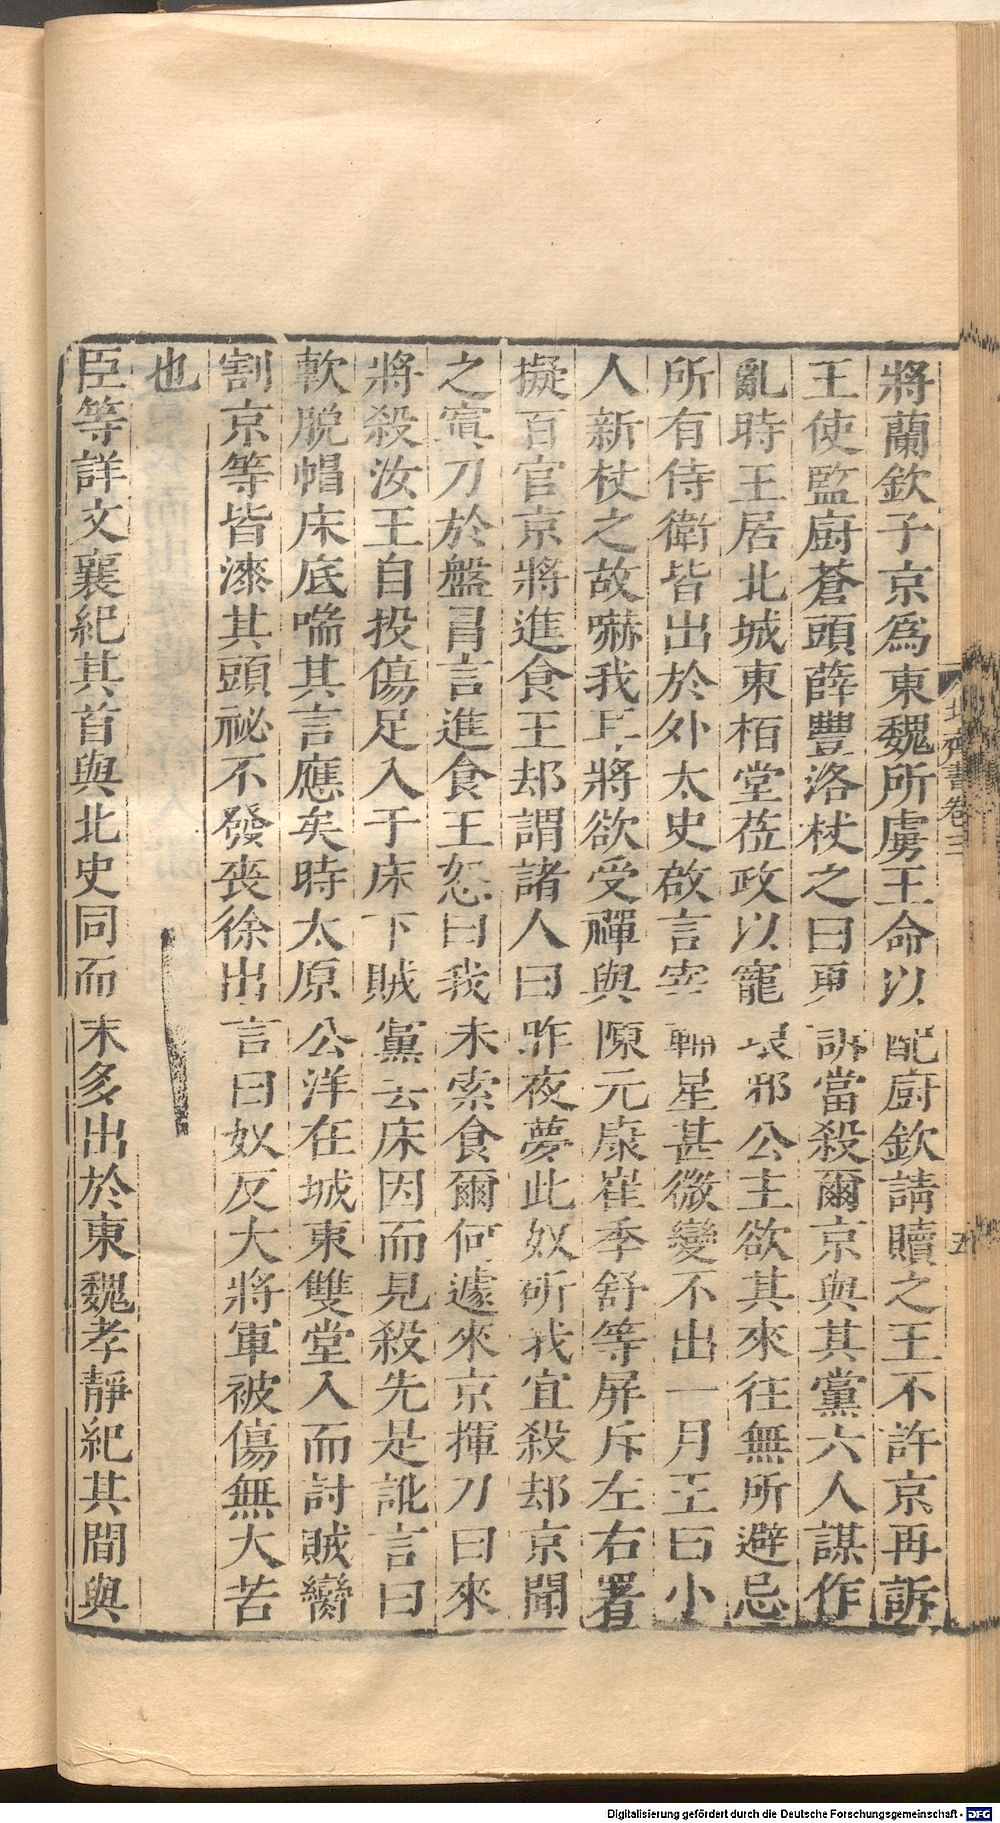 將蘭欽子京爲東魏所虜王命以配廚欽請贖之王不許京再訴
王使監廚蒼頭薛豐洛杖之曰更訴當殺爾京與其黨六人謀作
亂時王居北城東栢堂莅政以寵琅邪公主欲其來往無所避忌
所有侍衛皆出於外太史啟言宰輔星甚微變不出一月王曰小
人新杖之故嚇我耳將欲受禪與陳元康崔季舒等屏斥左右署
擬百官京將進食王却謂諸人曰昨夜夢此奴斫我宜殺却京聞
之寘刀於盤冒言進食王怒曰我未索食爾何遽來京揮刀曰來
將殺汝王自投傷足入于床下賊黨去床因而見殺先是訛言曰
軟脫帽床底喘其言應矣時太原公洋在城東雙堂入而討賊臠
割京等皆漆其頭祕不發喪徐出言曰奴反大將軍被傷無大苦
也
臣等詳文襄紀其首與北史同而末多出於東魏孝靜紀其間與
北齊書卷三
五
Digitalisierung gefördert durch die Deutsche Forschungsgemeinschaft - DFG